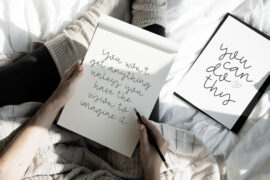 you won't
get anything
unless you
have the
vision to
imagine it
you
can
do
this